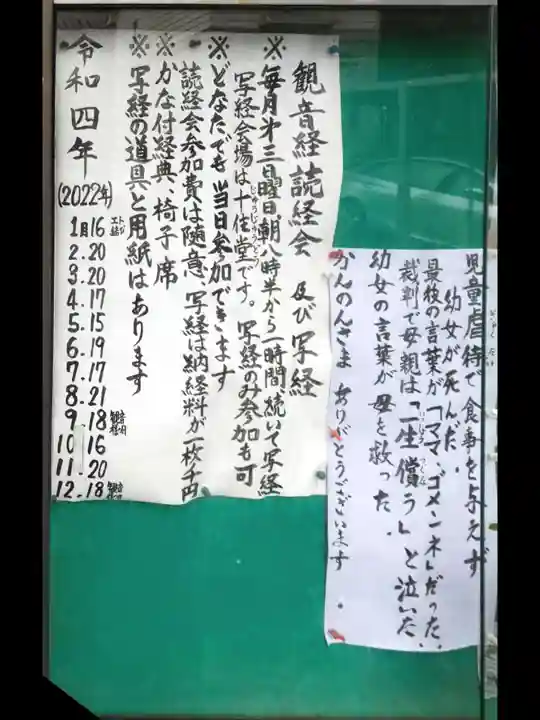 観音経読経会 及び 写経
※毎月第三日曜日、朝八時半から一時間、続いて写経
写経会場は十住堂です。 写経のみ参加も可
じゅうじゅうどう
※どなたでも当日参加できます
読経会参加費は随意、写経は納経料が一枚千円
※かな付経典、椅子席
※写経の道具と用紙はあります
令和四年
(2022年)
1月16
2.20
3.20
4.17
5.15
6.19
7.17
8.21
9.18
10.16
11.20
12.18
児童虐待で食事を与えず
幼女が死んだ。
最後の言葉が「ママ、ゴメンネ」だった。
裁判で母親は「一生償う」と泣いた。
いっしょう つぐな
幼女の言葉が母を救った。
かんのんさま ありがとうございます。